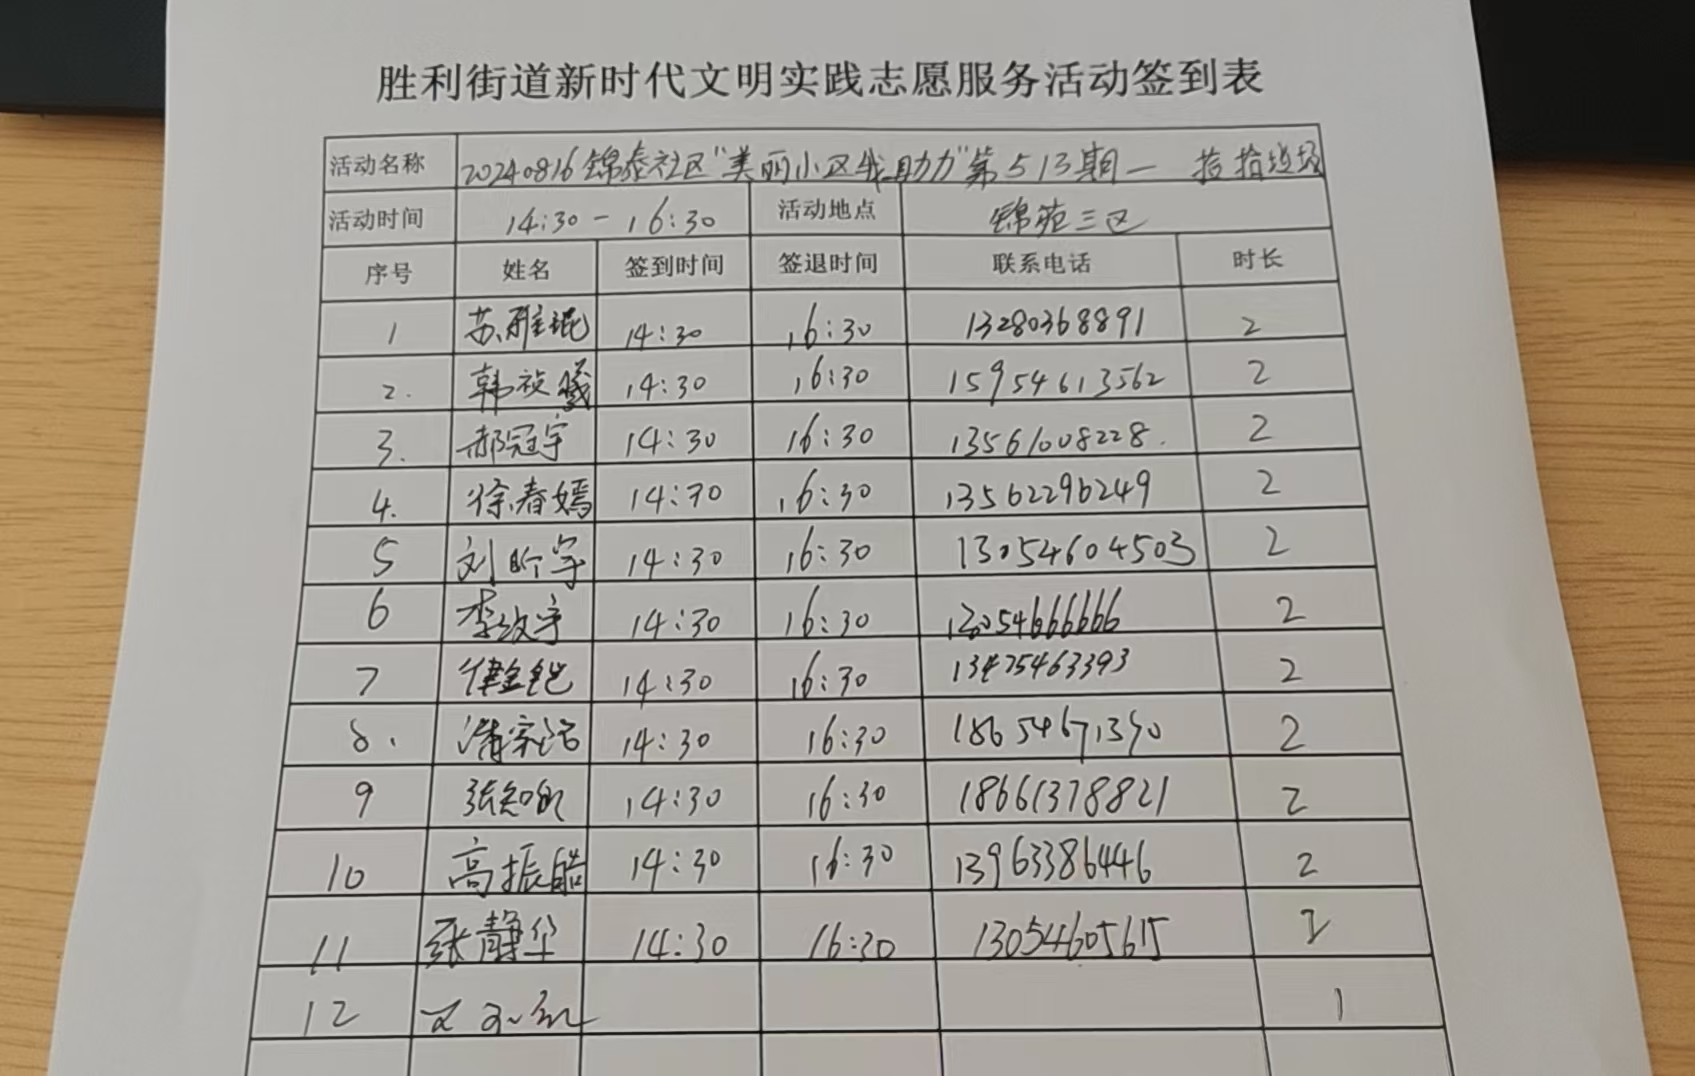 胜利街道新时代文明实践志愿服务活动签到表
活动名称 20240816锦泰社区"美丽小区我助力"第513期一 捡拾垃圾
活动时间 14:30-16:30 活动地点 锦苑三区
序号 姓名 签到时间 签退时间 联系电话 时长
1 苏雅琨 14:30 16:30 13280368891 2
2. 韩祯曦 14:30 16:30 15954613562 2
3. 郝冠宇 14:30 16:30 13561008228. 2
4. 徐春嫣 14:30 16:30 13562296249 2
5 刘昕宇 14:30 16:30 13054604503 2
6 李政宇 14:30 16:30 13054666666 2
7 14:30 16:30 13475463393 2
8. 14:30 16:30 18654671390 2
9 张知 14:30 16:30 18661378821 2
10 高振皓 14:30 16:30 13963386446 2
11 张静华 14:30 16:30 13054605615 2
12 1